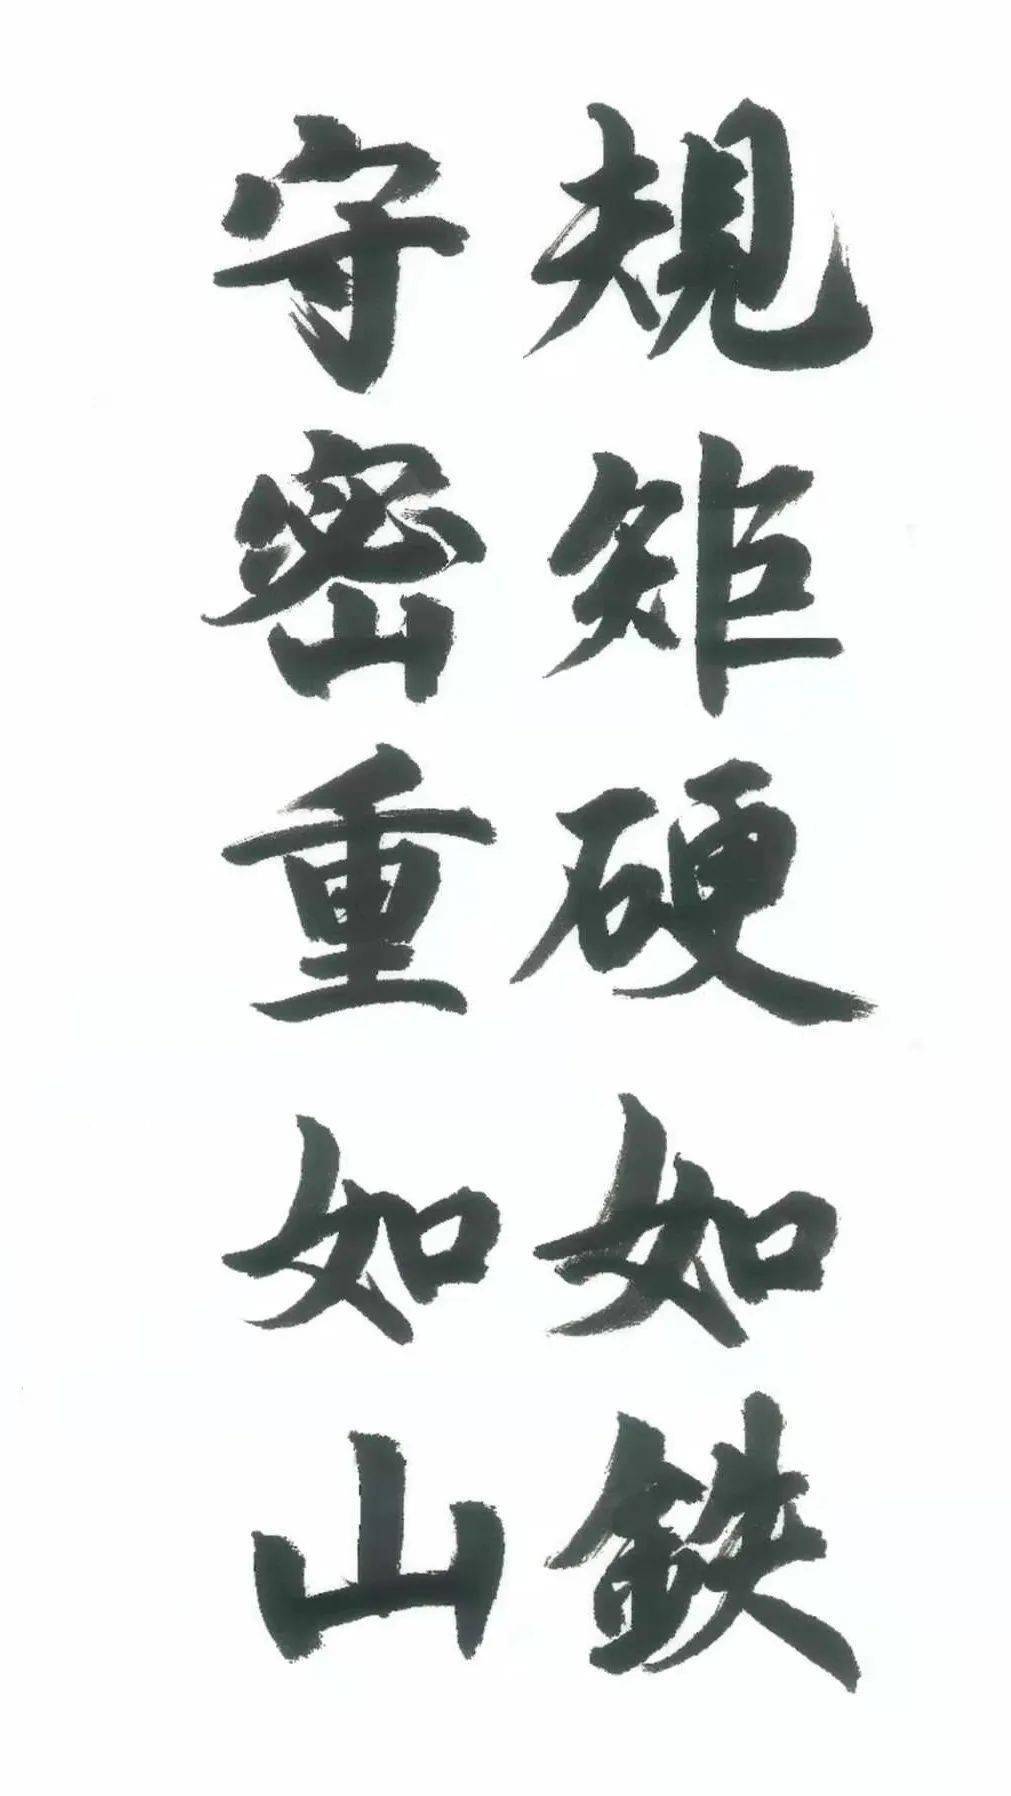 規矩硬如鉄
守密重如山